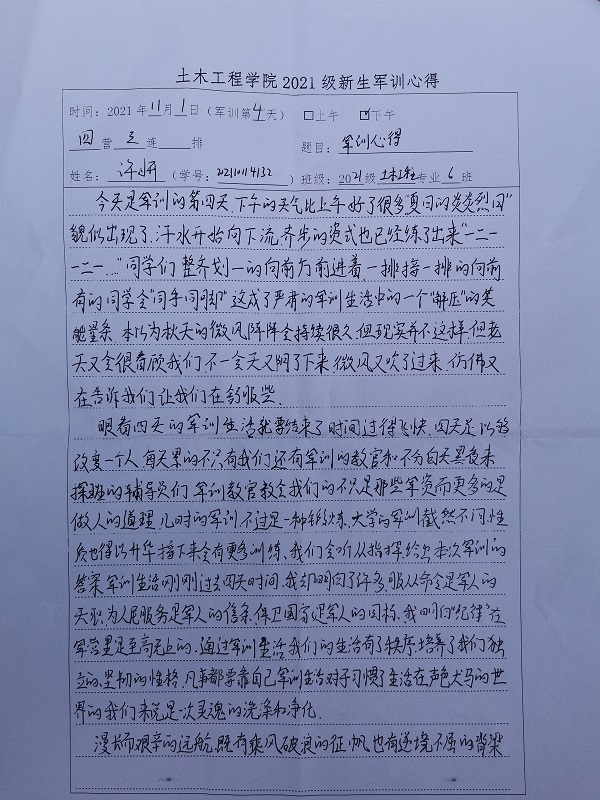 土木工程学院2021级新生军训心得
时间：2021年11月1日（军训第4天） □上午 ☑下午
四营三连 排 题目：军训心得
姓名：许妍（学号：20211014132）班级：2021级土木工程专业6班
今天是军训的第四天，下午的天气比上午好了很多夏日的炎炎烈日"
貌似出现了，汗水开始向下流齐步的姿式也已经练了出来"一二一
一二一…"同学们整齐划一的向前方前进着，一排接一排的向前
有的同学会"同手同脚"这成了严肃的军训生活中的一个"解压"的笑
本以为秋天的微风阵阵会持续很久，但现实并不这样，但老
天又会很眷顾我们，不一会天又阴了下来，微风又吹了过来，仿佛又
在告诉我们让我们在舒服些．
眼看四天的军训生活就要结束了，时间过得飞快，四天足以够
改变一个人，每天累的不只有我们还有军训的教官和不分白天黑夜来
探班的辅导员们，军训教官教会我们的不只是那些军姿而更多的是
做人的道理，儿时的军训不过是一种锻炼，大学的军训截然不同，性
质也得以升华，接下来会有更多训练，我们会听从指挥，给出本次军训的
答案，军训生活刚刚过去四天时间，我却明白了许多，服从命令是军人的
天职，为人民服务是军人的信条，保卫国家是军人的目标，我明白"纪律"在
军营里是至高无上的，通过军训生活我们的生活有了秩序，培养了我们独
立的、坚韧的性格，凡事都要靠自己，军训生活对于习惯了生活在声色犬马的世
界的我们来说是一次灵魂的洗涤和净化．
漫长而艰辛的远航，既有乘风破浪的征帆，也有逆境不屈的脊梁